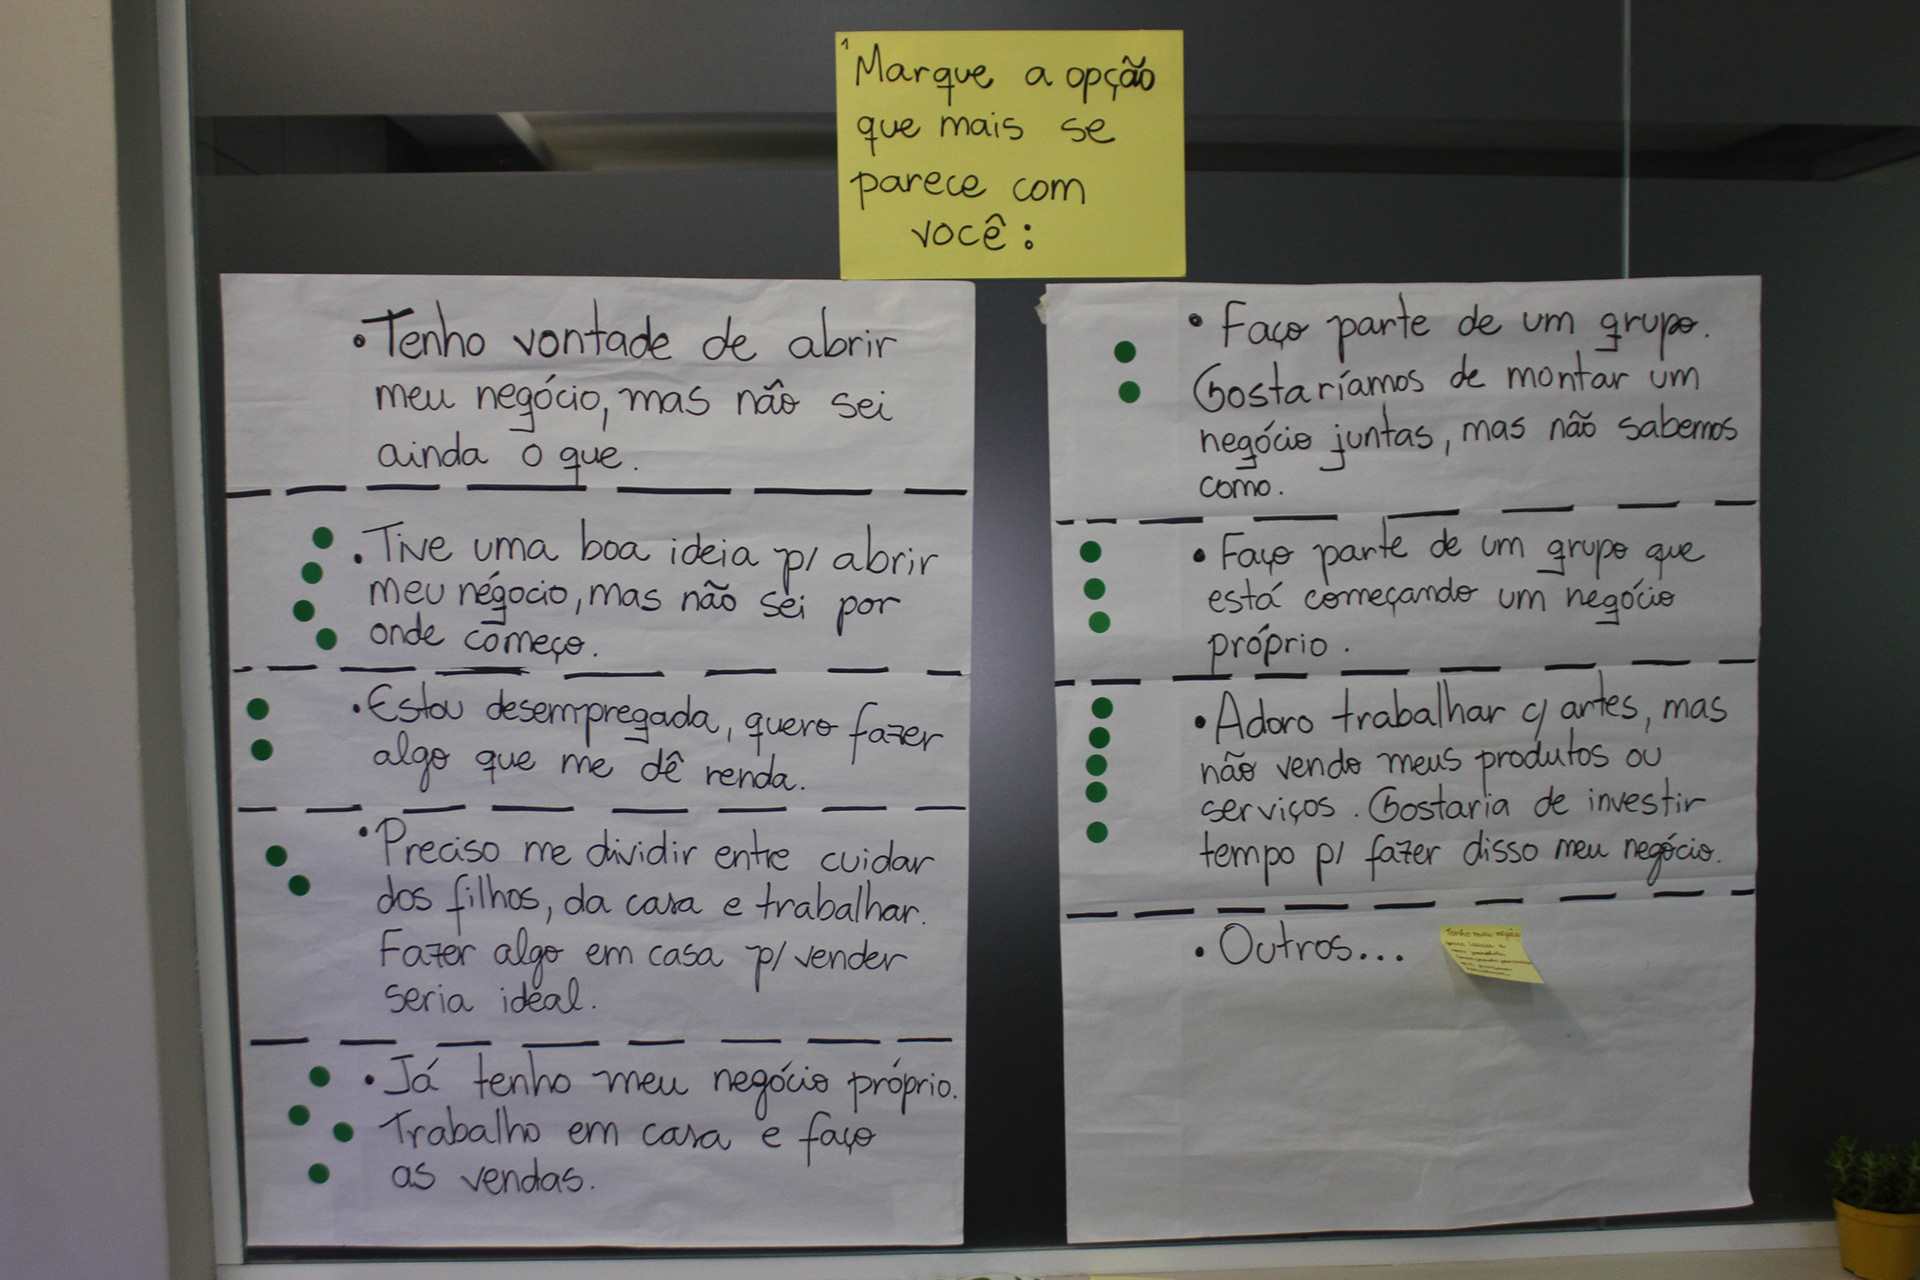 1
Marque a opção
que mais se
parece com
você:
• Tenho vontade de abrir
meu negócio, mas não sei
ainda o que.
• Tive uma boa ideia p/ abrir
meu négocio, mas não sei por
onde começo.
• Estou desempregada, quero fazer
algo que me dê renda.
• Preciso me dividir entre cuidar
dos filhos, da casa e trabalhar.
Fazer algo em casa p/ vender
seria ideal.
• Já tenho meu negócio próprio.
Trabalho em casa e faço
as vendas.
• Faço parte de um grupo.
Gostaríamos de montar um
negócio juntas, mas não sabemos
como.
• Faço parte de um grupo que
está começando um negócio
próprio.
• Adoro trabalhar c/ artes, mas
não vendo meus produtos ou
serviços. Gostaria de investir
tempo p/ fazer disso meu negócio.
• Outros...
Tenho meu negócio